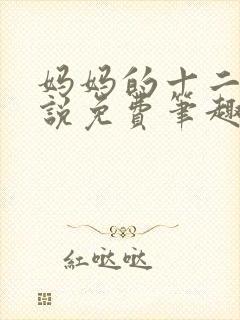 妈妈的十二
說免費筆趣
紅哒哒